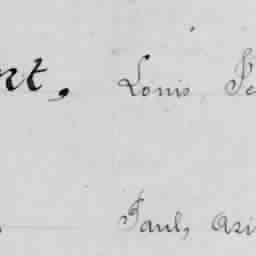 nt, Louis
Paul,